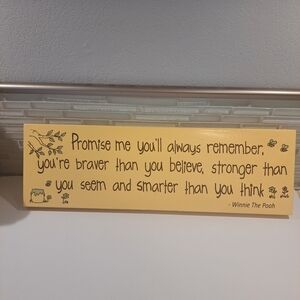 Promise me you'll always remember,
you're braver than you believe, stronger than
you seem and smarter than you think
- Winnie The Pooh